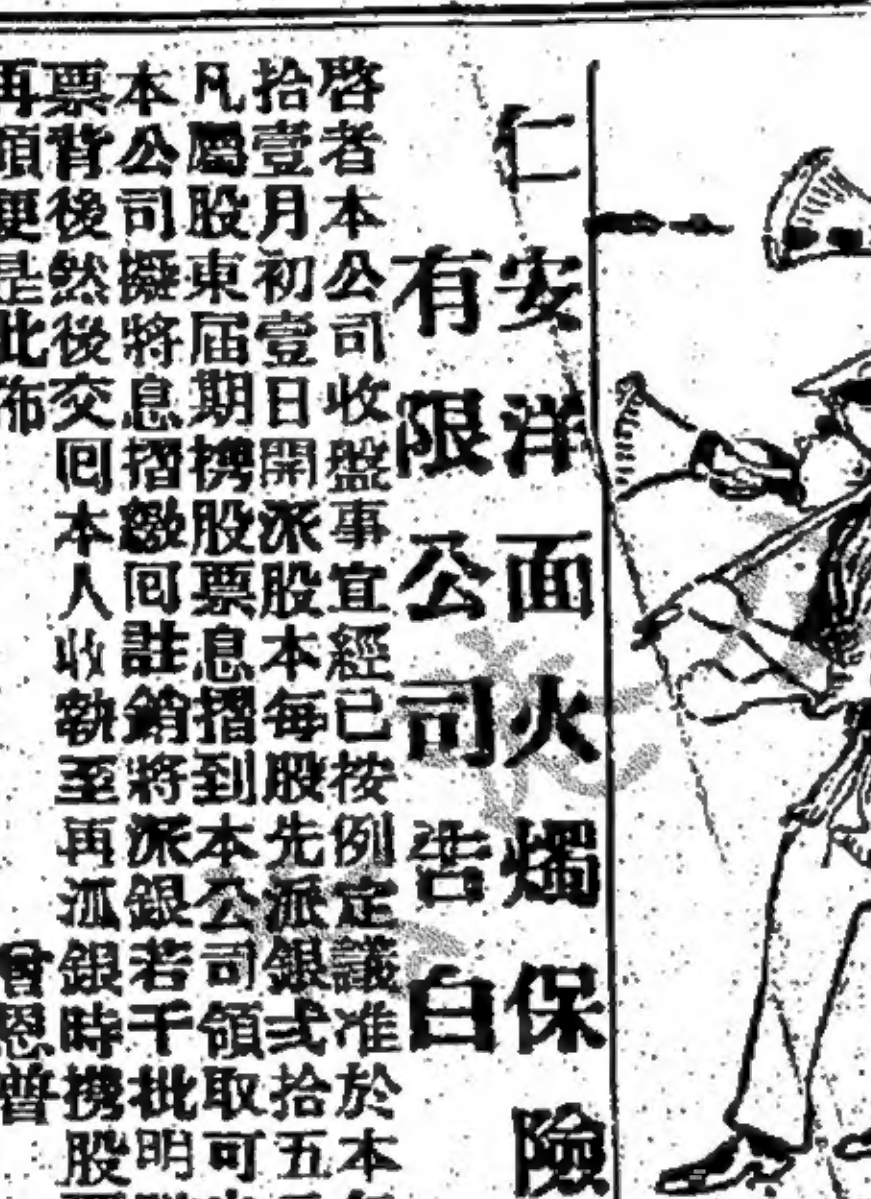 仁安洋面火燭保險
有限公司告白
啓者本公司收盤事宜經已按例定議准於本
拾壹月初壹日開派股本每股先派銀弍拾五
凡屬股東届期携股票息摺到本公司領取可
本公司擬將息摺繳囘註銷將派銀若干批明
票背後然後交囘本人收執至再派銀時携股
再領便是此佈
曾恩普